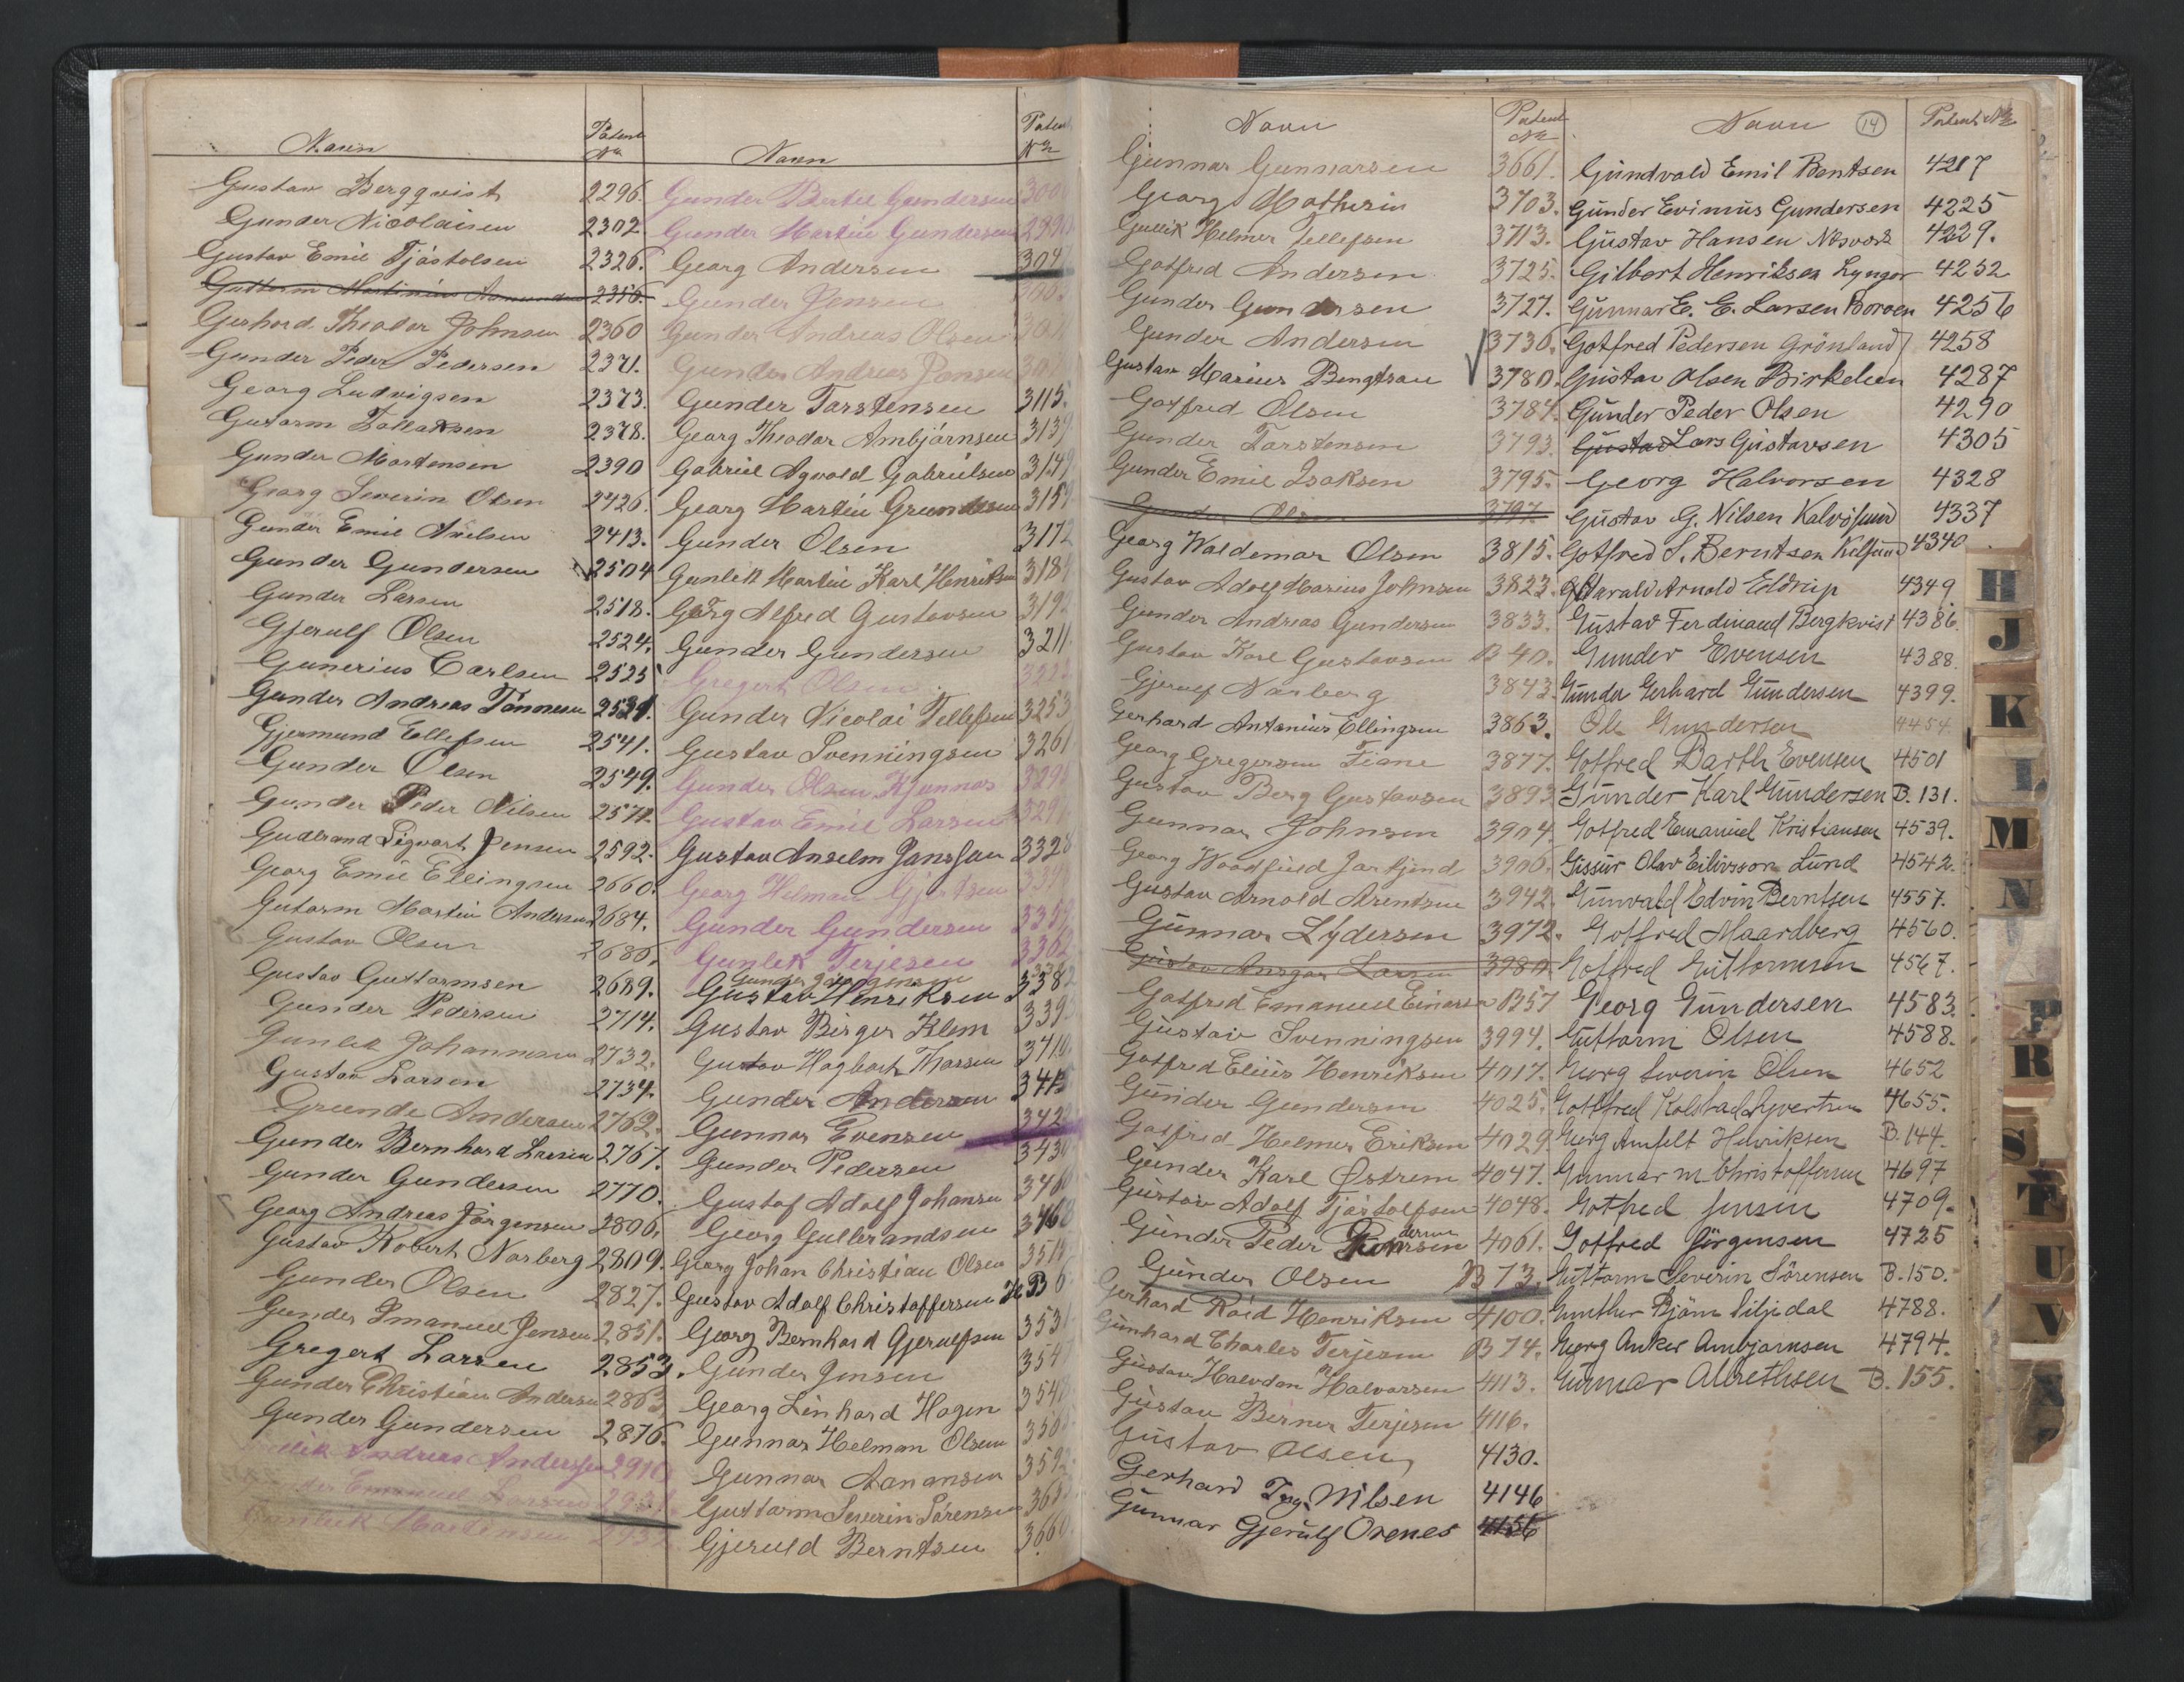 Navn Patent No
Gustav Bergqvist 2296.
Gunder Nicolaisen 2302.
Gustav Emil Tjöstolsen 2326.
Guttorm Martinius 2356.
Gerhard Theodor Johnsen 2360
Gunder Peder Pedersen 2371.
Georg Ludvigsen 2373.
Gutorm Tallaksen 2378.
Gunder Mortensen 2390
Georg Severin Olsen 2426.
Gunder Emil Nielsen 2413.
Gunder Gundersen 2504
Gunder Larsen 2518.
Gjerulf Olsen 2524.
Gunerius Carlsen 2525
Gunder Andreas Tönnesen 2531.
Gjermund Ellefsen 2541.
Gunder Olsen 2549.
Gunder Peder Nilsen 2571.
Gudbrand Sigvart Jensen 2592.
Georg Emil Ellingsen 2660.
Gutorm Martin Andersen 2684.
Gustav Olsen 2686.
Gustav Guttormsen 2689.
Gunder Pedersen 2714.
Gunlek Johannesen 2732.
Gustav Larsen 2734.
Grunde Andersen 2762.
Gunder Bernhard Larsen 2767.
Gunder Gundersen 2770.
Georg Andreas Jörgensen 2806.
Gustav Robert Norberg 2809.
Gunder Olsen 2827.
Gunder Imanuel Jensen 2851.
Gregert Larsen 2853.
Gunder Christian Andersen 2863
Gunder Gundersen 2876.
Andreas Andersen 2910
Emanuel Larsen 293
Gunlek Martinsen 293
Navn Patent No
Gunder Bertel Gundersen 300
Gunder Martin Gundersen 2990
Georg Andersen 304
Gunder Jensen
Gunder Andreas Olsen
Gunder Andreas Jensen
Gunder Tarstensen 3115.
Georg Theodor Ambjörnsen 3139
Gabriel Agvald Gabrielsen 3149
Georg Martin Grundesen 3159
Gunder Olsen 3172
Gunlek Martin Karl Henriksen 318
Georg Alfred Gustavsen 3192
Gunder Gundersen 3211
Gregert Olsen 322
Gunder Nicolai Tellefsen 3253
Gustav Svenningsen 3261
Gunder Olsen Kjennos 329
Gustav Emil Larsen 329
Gustav Anselm Jansson 3328
Georg Helman Gjertsen 334
Gunder Gundersen 335
Gunlek Terjesen 3362
Gunder Jörgensen
Gustav Henriksen 3382
Gustav Birger Klem 339
Gustav Hagbart Thorsen 3410
Gunder Andersen 341
Gunnar Evensen 342
Gunder Pedersen 3430
Gustaf Adolf Johansen 346
Georg Gulbrandsen 3468
Georg Johan Christian Olsen 351
Gustav Adolf Christoffersen B 6
Georg Bernhard Gjerulfsen 353
Gunder Jensen 354
Georg Linhard Hagen 354
Gunnar Helman Olsen 35
Gunnar Aanansen 359
Guttorm Severin Sörensen 36
Gjeruld Berntsen 3660
Navn Patent No
Gunnar Gunnarsen 3661.
Georg Mathisen 3703.
Gullik Helmer Tellefsen 3713.
Gotfred Andersen 3725.
Gunder Gundersen 3727.
Gunder Andersen 3736.
Gustav Marius Bengtson 3780.
Gotfred Olsen 3784.
Gunder Tarstensen 3793.
Gunder Emil Isaksen 3795.
Gunder Olsen 3797
Georg Waldemar Olsen 3815.
Gustav Adolf Marius Johnsen 3823.
Gunder Andreas Gundersen 3833.
Gustav Karl Gustavsen B 40.
Gjerulf Narberg 3843
Gerhard Antonius Ellingsen 3863.
Georg Gregersen Fiane 3877.
Gustav Berg Gustavsen 3893
Gunnar Johnsen 3904.
Georg 3906.
Gustav Arnold Arentsen 3942.
Gunnar Lydersen 3972.
Gustav Ansgar Larsen 3980
Gotfred Emanuel Einarsen B 57
Gustav Svenningsen 3994.
Gotfred Elius Henriksen 4017.
Gunder Gundersen 4025.
Gotfred Helmer Eriksen 4029
Gunder Karl Östrem 4047.
Gustav Adolf Tjöstolfsen 4048.
Gunder Peder 4061.
Gunder Olsen B 73.
Gerhard Roid Henriksen 4100.
Gunhard Charles Terjesen B 74.
Gustav Halvdan Halvorsen 413.
Gustav Berner Terjesen 4116.
Gustav Olsen 4130.
Gerhard Tryg. Nilsen 4146
Gunnar Gjerulf Oxenes 4156
Navn 14 Patent No
Gundvald Emil Bentsen 4217
Gunder Evinius Gundersen 4225
Gustav Hansen 4229.
Gilbert Henriksen Lyngør 4252
Gunnar E. E. Larsen Boroen 4256
Gotfred Pedersen Grönland 4258
Gustav Olsen Birkelien 4287
Gunder Peder Olsen 4290
Gustav Lars Gustavsen 4305
Georg Halvorsen 4328
Gustav G. Nilsen Kalvøsund 4337
Gotfred S. Berntsen 4340
Harald Arnold Eldrup 4349
Gustav Ferdinand Bergkvist 4386
Gunder Evensen 4388.
Gunder Gerhard Gundersen 4399.
Ole Gundersen 4454
Gotfred Barth Evensen 4501
Gunder Karl Gundersen B. 131.
Gotfred Emanuel Kristiansen 4539.
Gissur Olav Eilivsson Lund 4542.
Gunvald Edvin Berntsen 4557.
Gotfred Maardberg 4560.
Gotfred Guttormsen 4567.
Georg Gundersen 4583.
Guttorm Olsen 4588.
Georg Severin Olsen 4652
Gottfred Kolstad Syvertsen 4655.
Georg Amfelt Henriksen B. 144.
Gunnar M Christoffersen 4697
Gotfred Jensen 4709.
Gotfred Jörgensen 4725
Guttorm Severin Sörensen B. 150.
Gunther Bjørn Siljedal 4788.
Georg Anker Ambjørnsen 4794.
Gunnar Albrethsen B. 155.
H
J
K
L
M
N
P
R
S
T
U
V